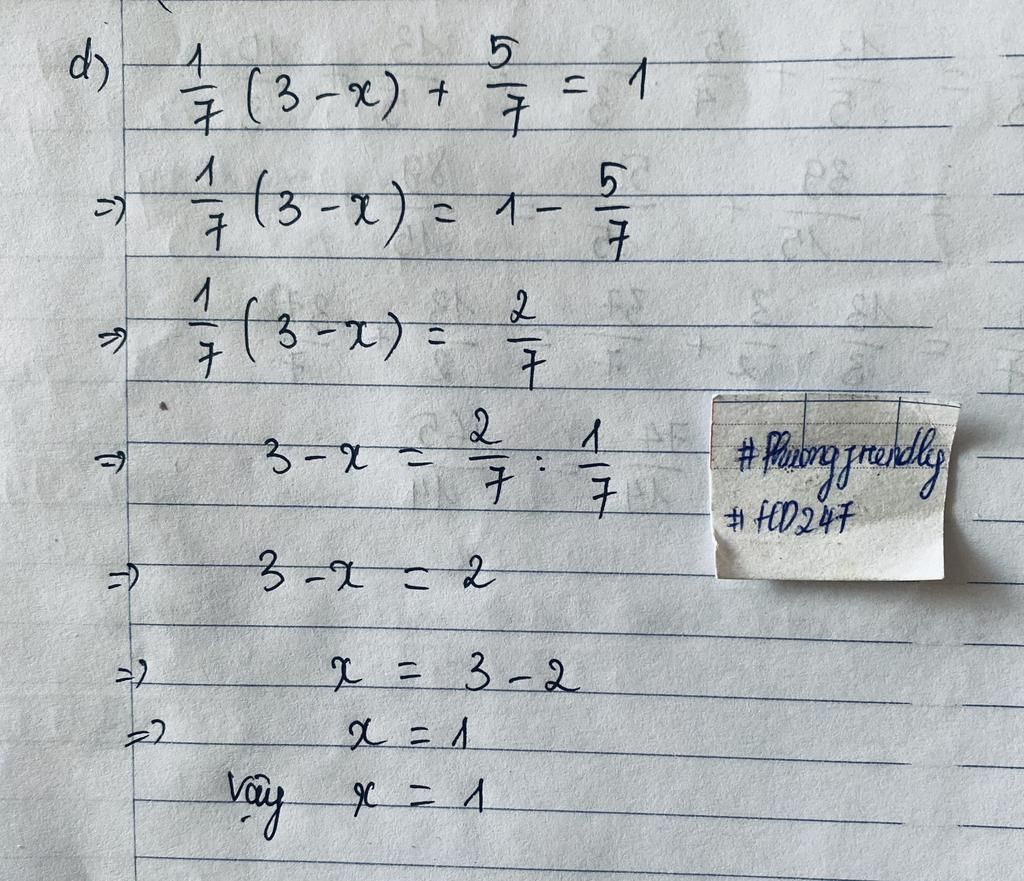 d) 1/7 (3 - x) + 5/7 = 1
=> 1/7 (3 - x) = 1 - 5/7
=> 1/7 (3 - x) = 2/7
=> 3 - x = 2/7 : 1/7
=> 3 - x = 2
=> x = 3 - 2
=> x = 1
Vậy x = 1
#Phuongfriendly
#HD247